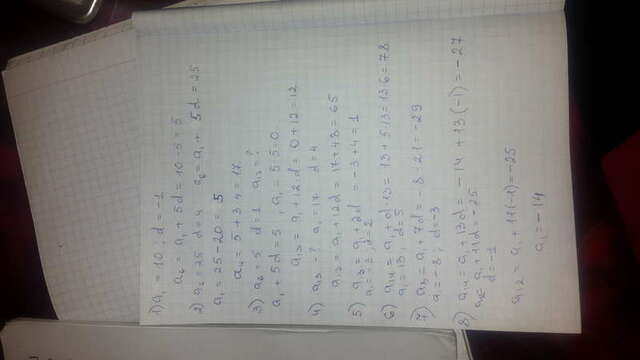 1) a₁ = 10 ; d = -1
a₆ = a₁ + 5d = 10 - 5 = 5
2) a₆ = 25 d = 4 a₆ = a₁ + 5d = 25
a₁ = 25 - 20 = 5
a₄ = 5 + 3·4 = 17
3) a₆ = 5 d = 1 a₁₃ = ?
a₁ + 5d = 5 a₁ = 5 - 5 = 0
a₁₃ = a₁ + 12·d = 0 + 12 = 12
4) a₁₃ - ? a₁ = 17 d = 4
a₁₃ = a₁ + 12d = 17 + 48 = 65
5) a₃ = a₁ + 2d = -3 + 4 = 1
a₁ = -3 ; d = 2
6) a₁₄ = a₁ + d·13 = 13 + 5·13 = 13·6 = 78
a₁ = 13 ; d = 5
7) a₈ = a₁ + 7d = -8 - 21 = -29
a₁ = -8 ; d = -3
8) a₁₄ = a₁ + 13d = -14 + 13(-1) = -27
a₁₂ = a₁ + 11d = -25
d = -1
a₁₂ = a₁ + 11(-1) = -25
a₁ = -14